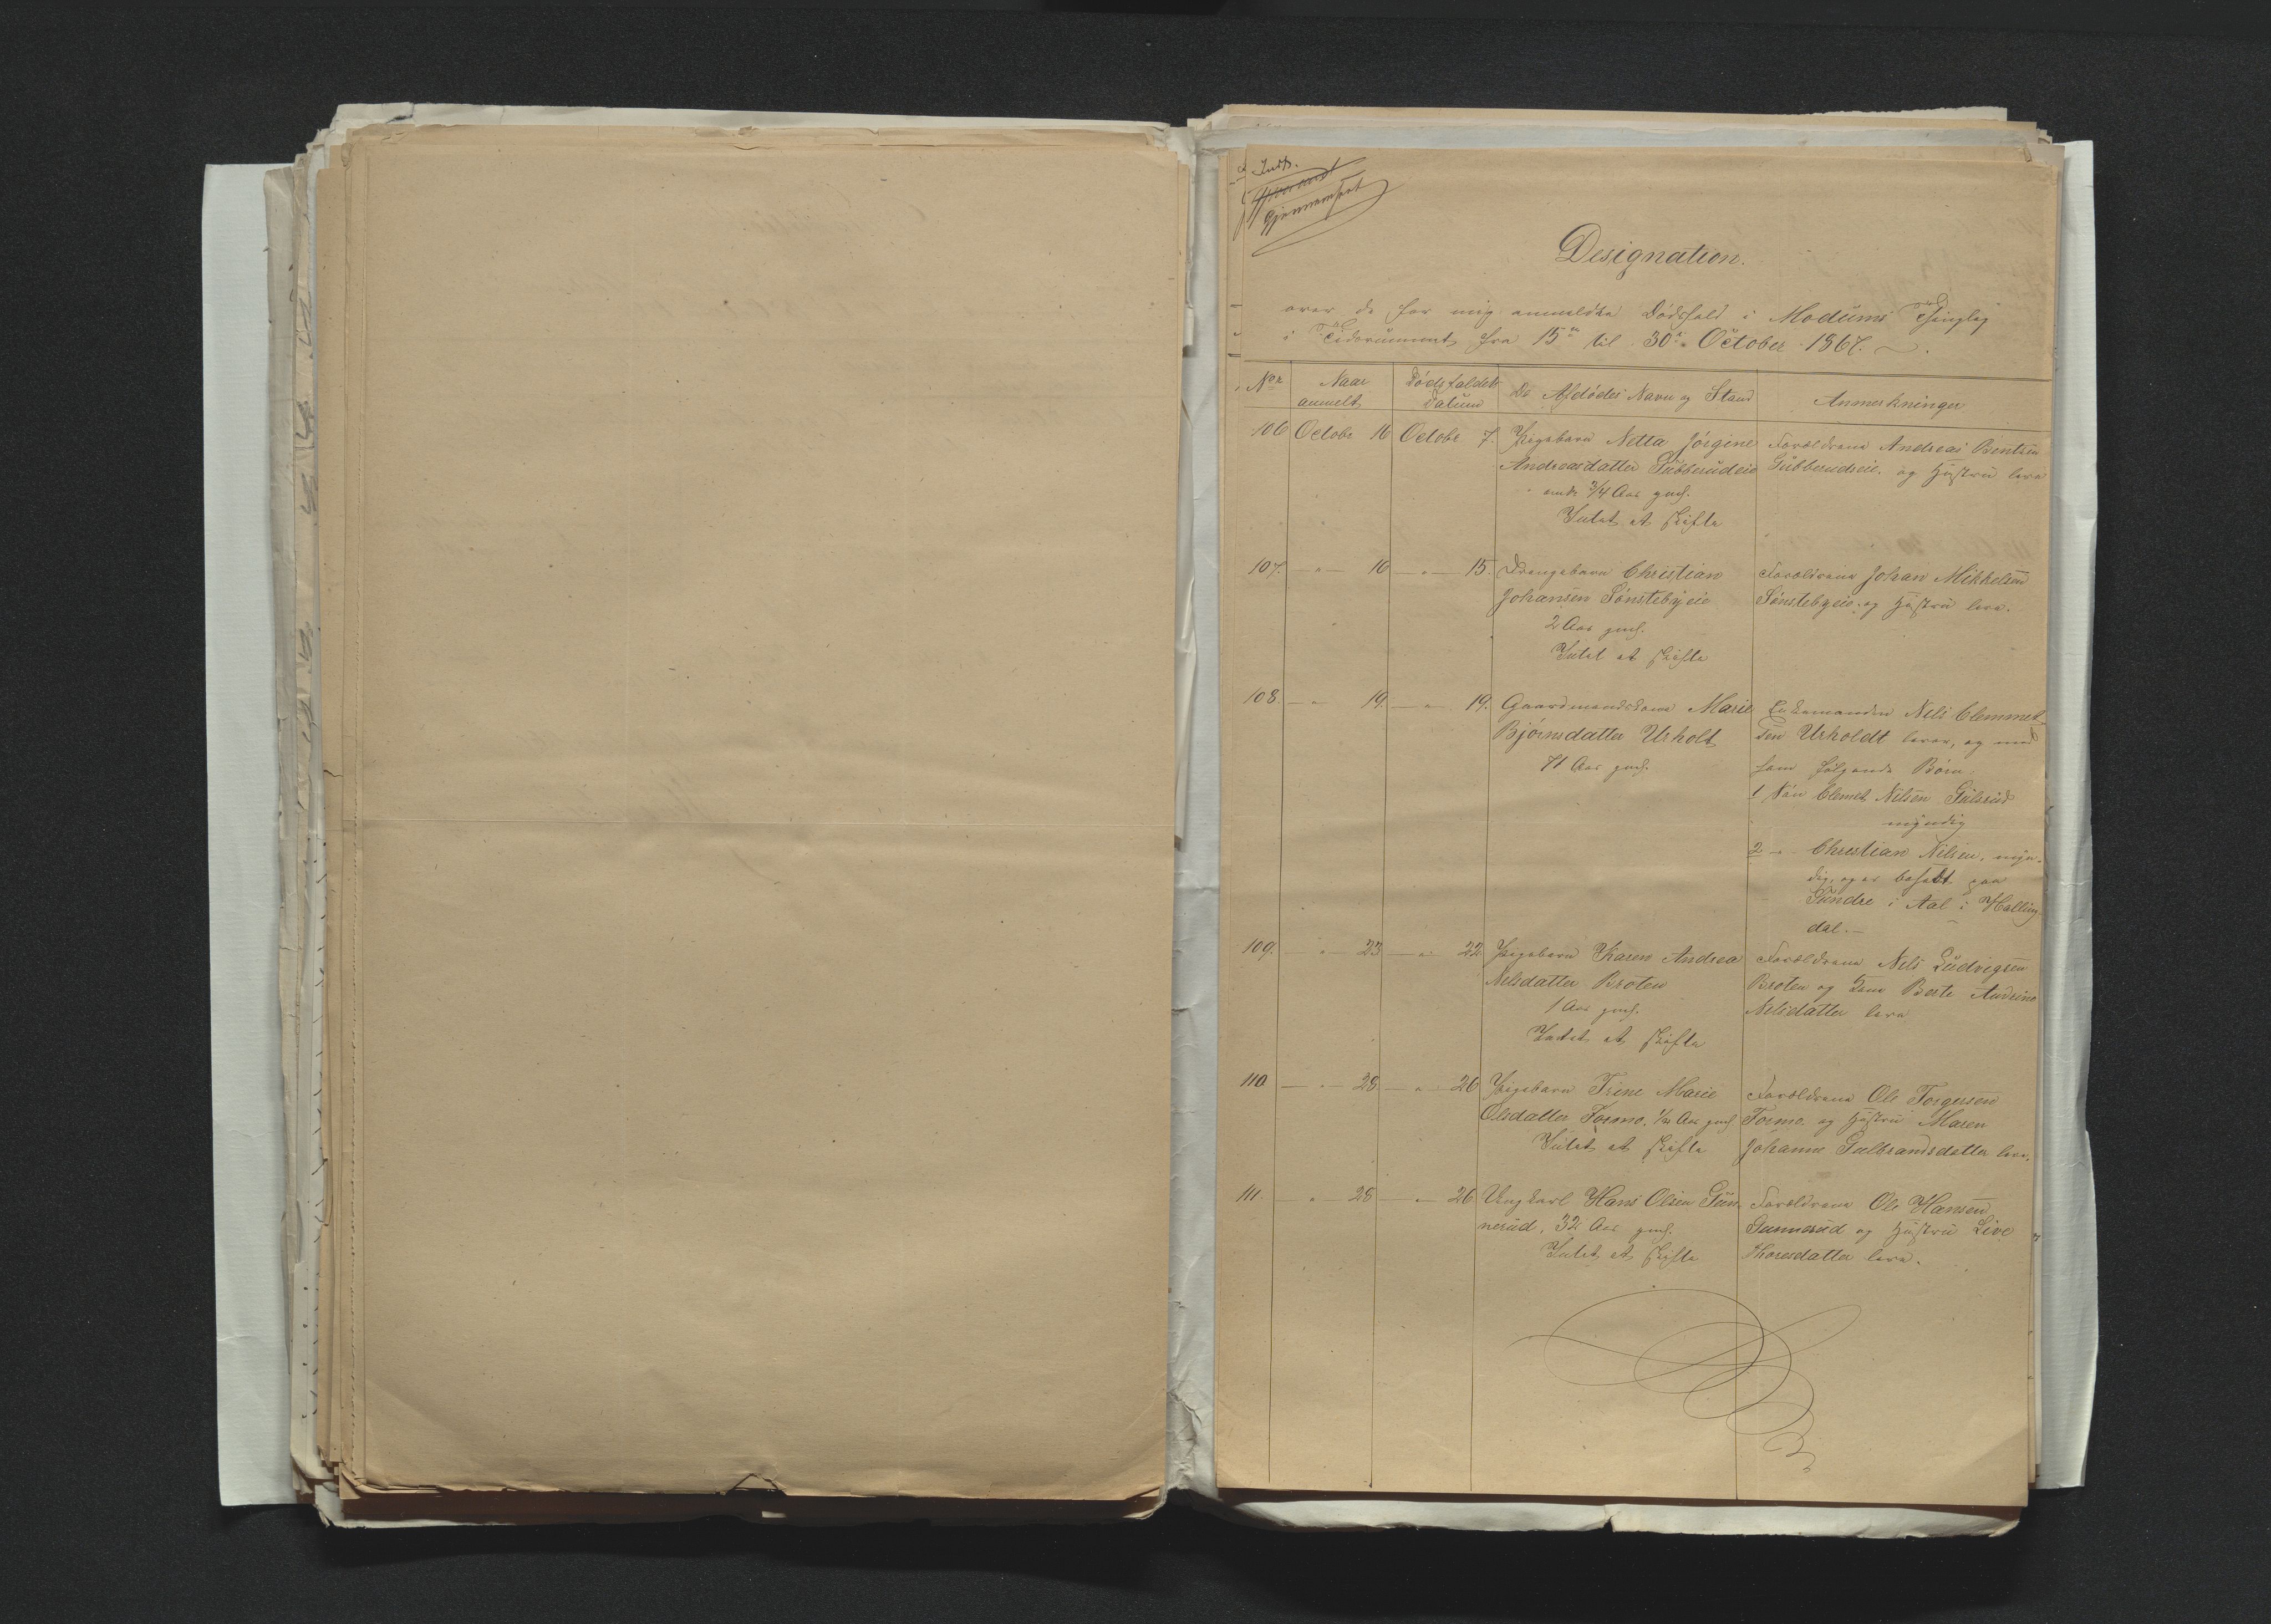 Indf.
Gjennemseet
Designation.
over de for mig anmeldte Dødsfald i Modums Thinglag
i Tidsrummet fra 15de til 30te October 1867.
No Naar anmelt Dødsfaldets Datum De Afdødes Navn og Stand Anmerkninger
106 Octobr 16 Octobr 7. Pigebarn Netta Jørgine
Andreasdatter Gubberudeie
3/4 Aar gml.
Intet at skifte
Forældrene Andreas Bentsen
Gubberudeie og Hustru leve
107. " 16 " 15. Drengebarn Christian
Johansen Sønstebyeie
2 Aar gml.
Intet at skifte
Forældrene Johan Mikkelsen
Sønstebyeie og Hustru leve.
108. " 19. " 19. Gaardmandskone Marie
Bjørnsdatter Urholt
71 Aar gml.
Enkemanden Nels Clemmet-
sen Urholdt lever, og med
ham følgende Børn
1 Søn Clemet Nelsen Gulsrud
myndig
2 " Christian Nilsen, myn-
dig, og er bosat paa
Sundre i Aal i Halling
dal.
109. " 23 " 22 Pigebarn Karen Andrea
Nelsdatter Broten
1 Aar gml.
Intet at skifte
Forældrene Nels Ludvigsen
Broten og Kone Berte Andrine
Nelsdatter leve
110 " 28 " 26 Pigebarn Trine Marie
Olsdatter Formo, Aar gml
Intet at skifte
Forældrene Ole Torgersen
Formo og Hustru Maren
Johanne Gulbrandsdatter leve.
111. " 28 " 26 Ungkarl Hans Olsen Gun-
nerud, 32 Aar gml.
Intet at skifte
Forældrene Ole Hansen
Gunnerud og Hustru Live
Thoresdatter leve.